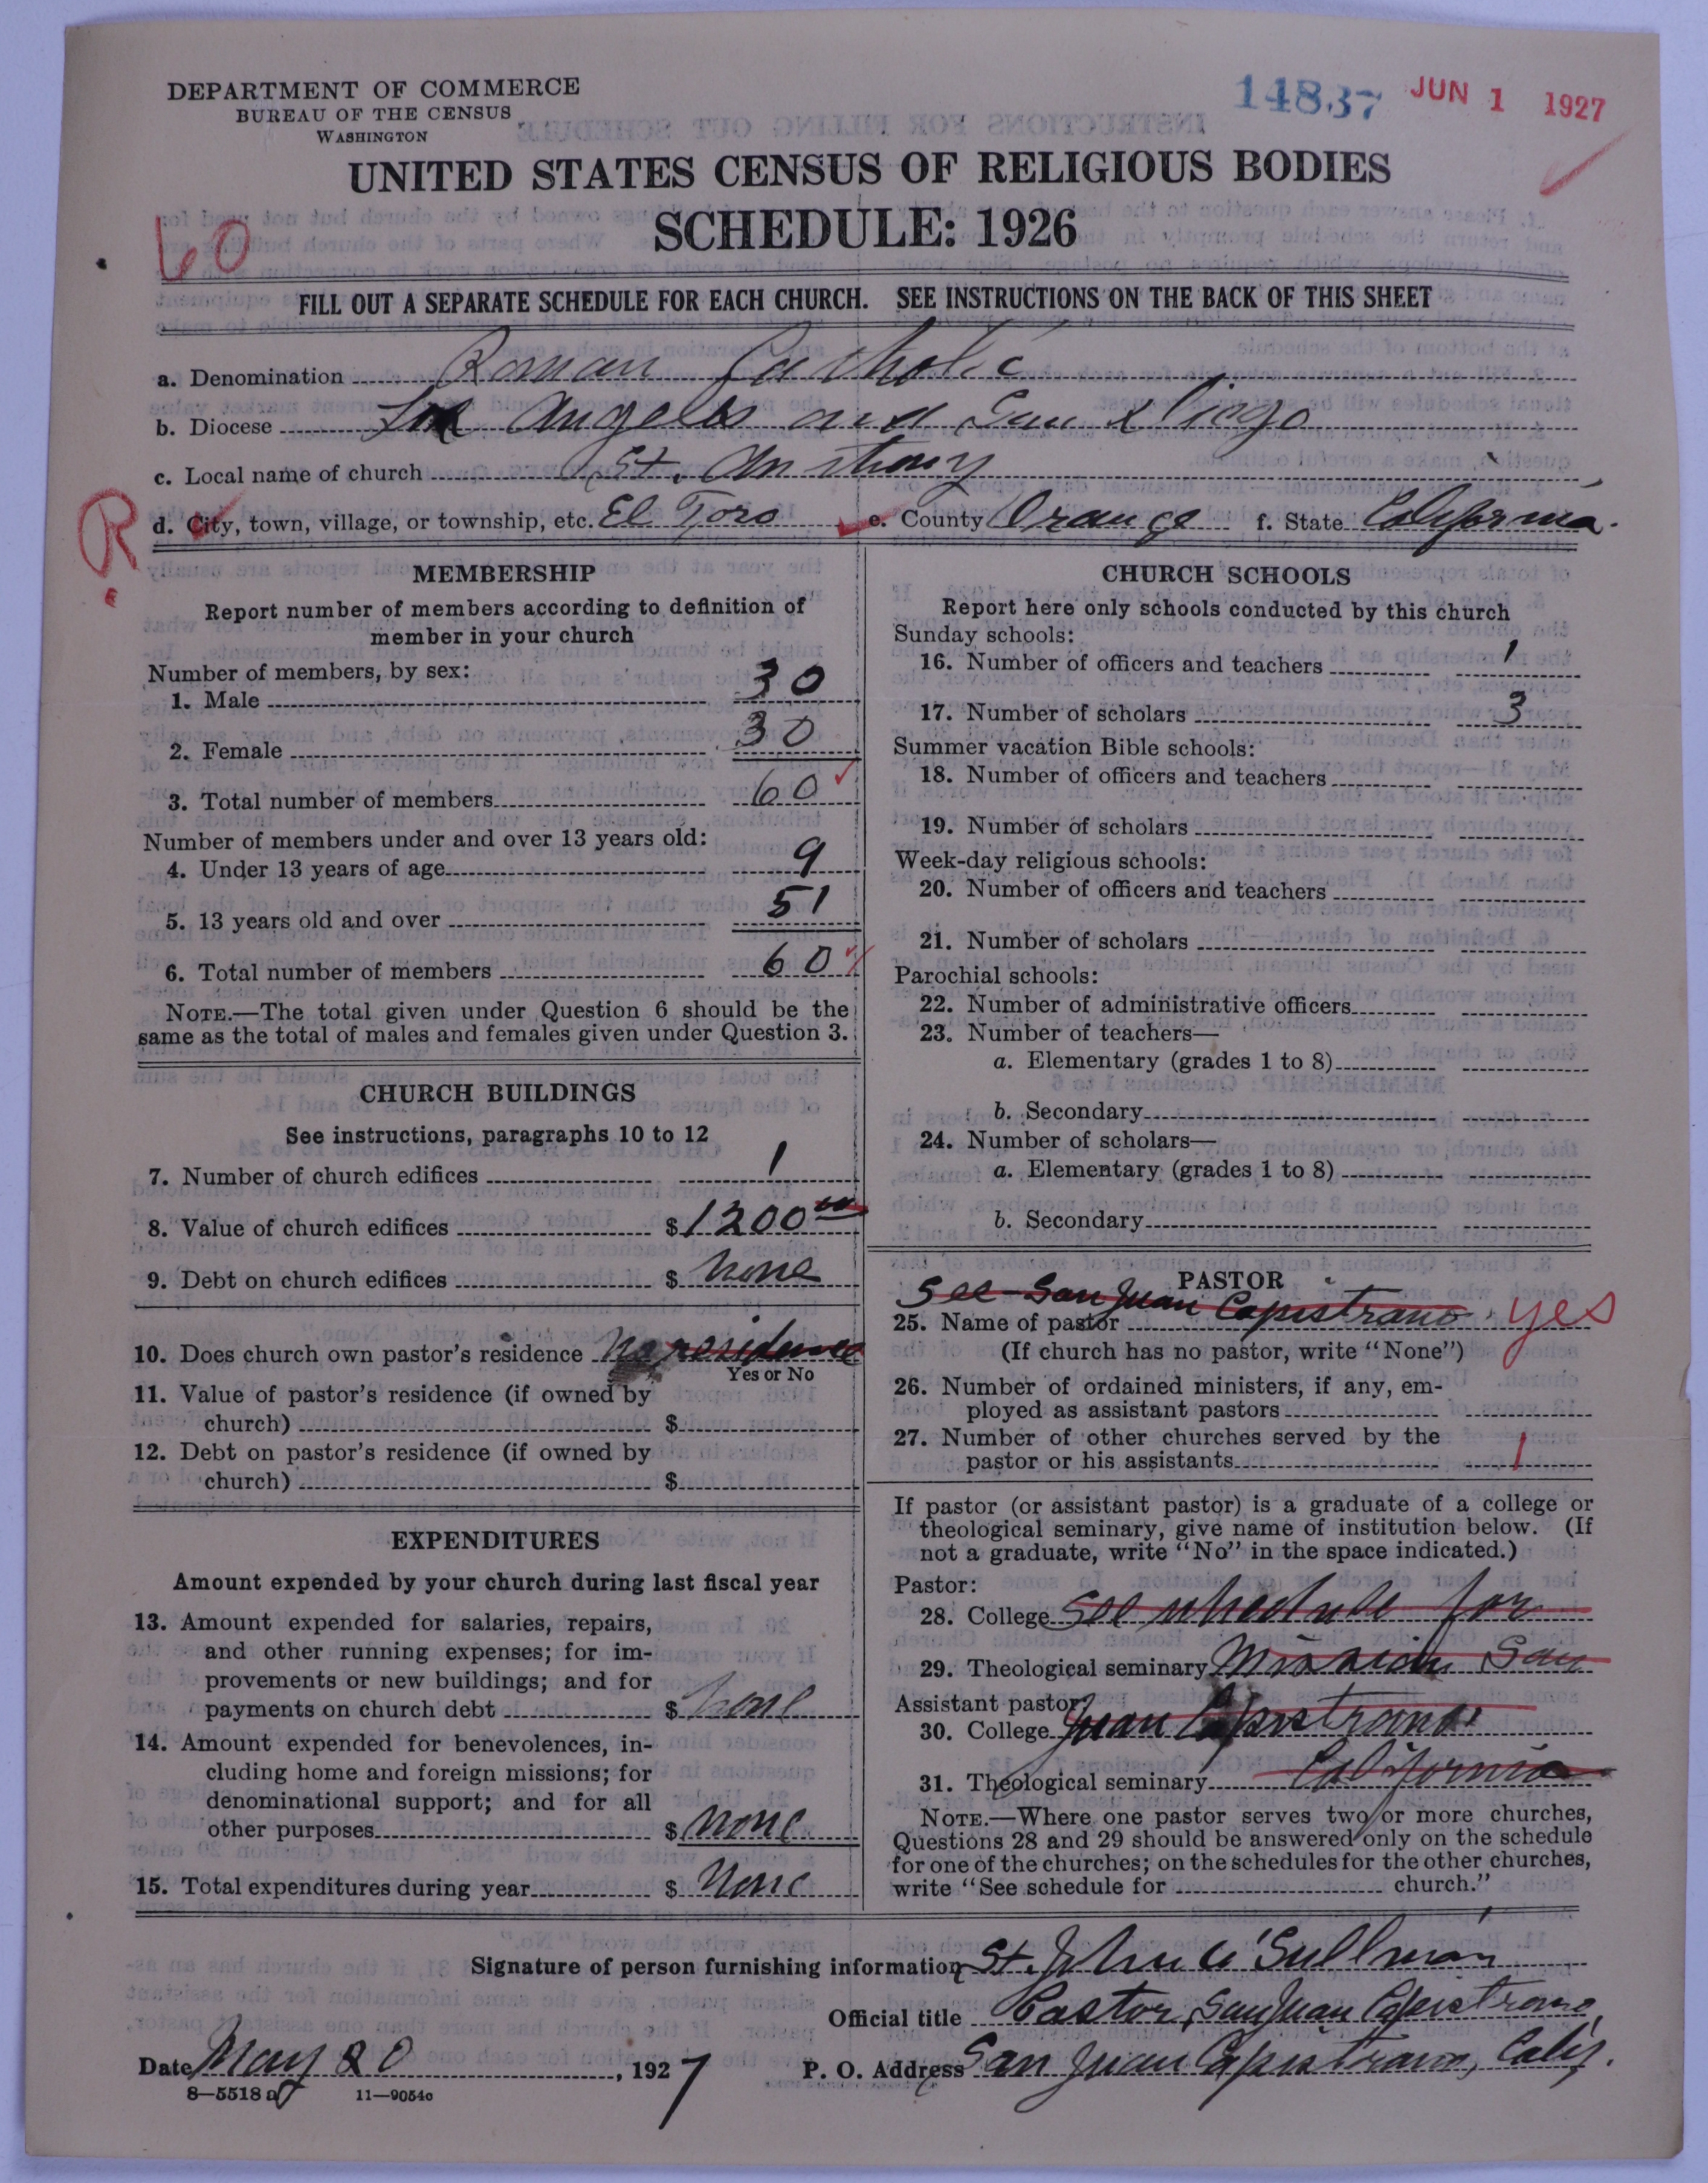 DEPARTMENT OF COMMERCE
BUREAU OF THE CENSUS
WASHINGTON
14837 JUN 1 1927
UNITED STATES CENSUS OF RELIGIOUS BODIES
SCHEDULE: 1926
60
FILL OUT A SEPARATE SCHEDULE FOR EACH CHURCH. SEE INSTRUCTIONS ON THE BACK OF THIS SHEET
a. Denomination Roman Catholic
b. Diocese Los Angeles and San Diego
c. Local name of church St. Anthony
R
d. City, town, village, or township, etc. El Toro e. County Orange f. State California.
MEMBERSHIP
Report number of members according to definition of
member in your church
Number of members, by sex:
1. Male 30
2. Female 30
3. Total number of members 60
Number of members under and over 13 years old:
4. Under 13 years of age 9
5. 13 years old and over 51
6. Total number of members 60
NOTE.—The total given under Question 6 should be the
same as the total of males and females given under Question 3.
CHURCH BUILDINGS
See instructions, paragraphs 10 to 12
7. Number of church edifices 1
8. Value of church edifices $1200 00
9. Debt on church edifices $ none
10. Does church own pastor's residence No residence
Yes or No
11. Value of pastor's residence (if owned by
church) $
12. Debt on pastor's residence (if owned by
church) $
EXPENDITURES
Amount expended by your church during last fiscal year
13. Amount expended for salaries, repairs,
and other running expenses; for im-
provements or new buildings; and for
payments on church debt $ none
14. Amount expended for benevolences, in-
cluding home and foreign missions; for
denominational support; and for all
other purposes $ none
15. Total expenditures during year $ None
CHURCH SCHOOLS
Report here only schools conducted by this church
Sunday schools:
16. Number of officers and teachers 1
17. Number of scholars 3
Summer vacation Bible schools:
18. Number of officers and teachers
19. Number of scholars
Week-day religious schools:
20. Number of officers and teachers
21. Number of scholars
Parochial schools:
22. Number of administrative officers
23. Number of teachers—
a. Elementary (grades 1 to 8)
b. Secondary
24. Number of scholars—
a. Elementary (grades 1 to 8)
b. Secondary
PASTOR
See San Juan Capistrano yes
25. Name of pastor
(If church has no pastor, write "None")
26. Number of ordained ministers, if any, em-
ployed as assistant pastors
27. Number of other churches served by the
pastor or his assistants 1
If pastor (or assistant pastor) is a graduate of a college or
theological seminary, give name of institution below. (If
not a graduate, write "No" in the space indicated.)
Pastor:
28. College See schedule for
29. Theological seminary Mission San
Assistant pastor:
30. College Juan Capistrano
31. Theological seminary California
NOTE.—Where one pastor serves two or more churches,
Questions 28 and 29 should be answered only on the schedule
for one of the churches; on the schedules for the other churches,
write "See schedule for church."
Signature of person furnishing information St. John O'Sullivan
Official title Pastor, San Juan Capistrano
Date May 20, 1927 P. O. Address San Juan Capistrano, Calif.
8—5518 a 11—9054c